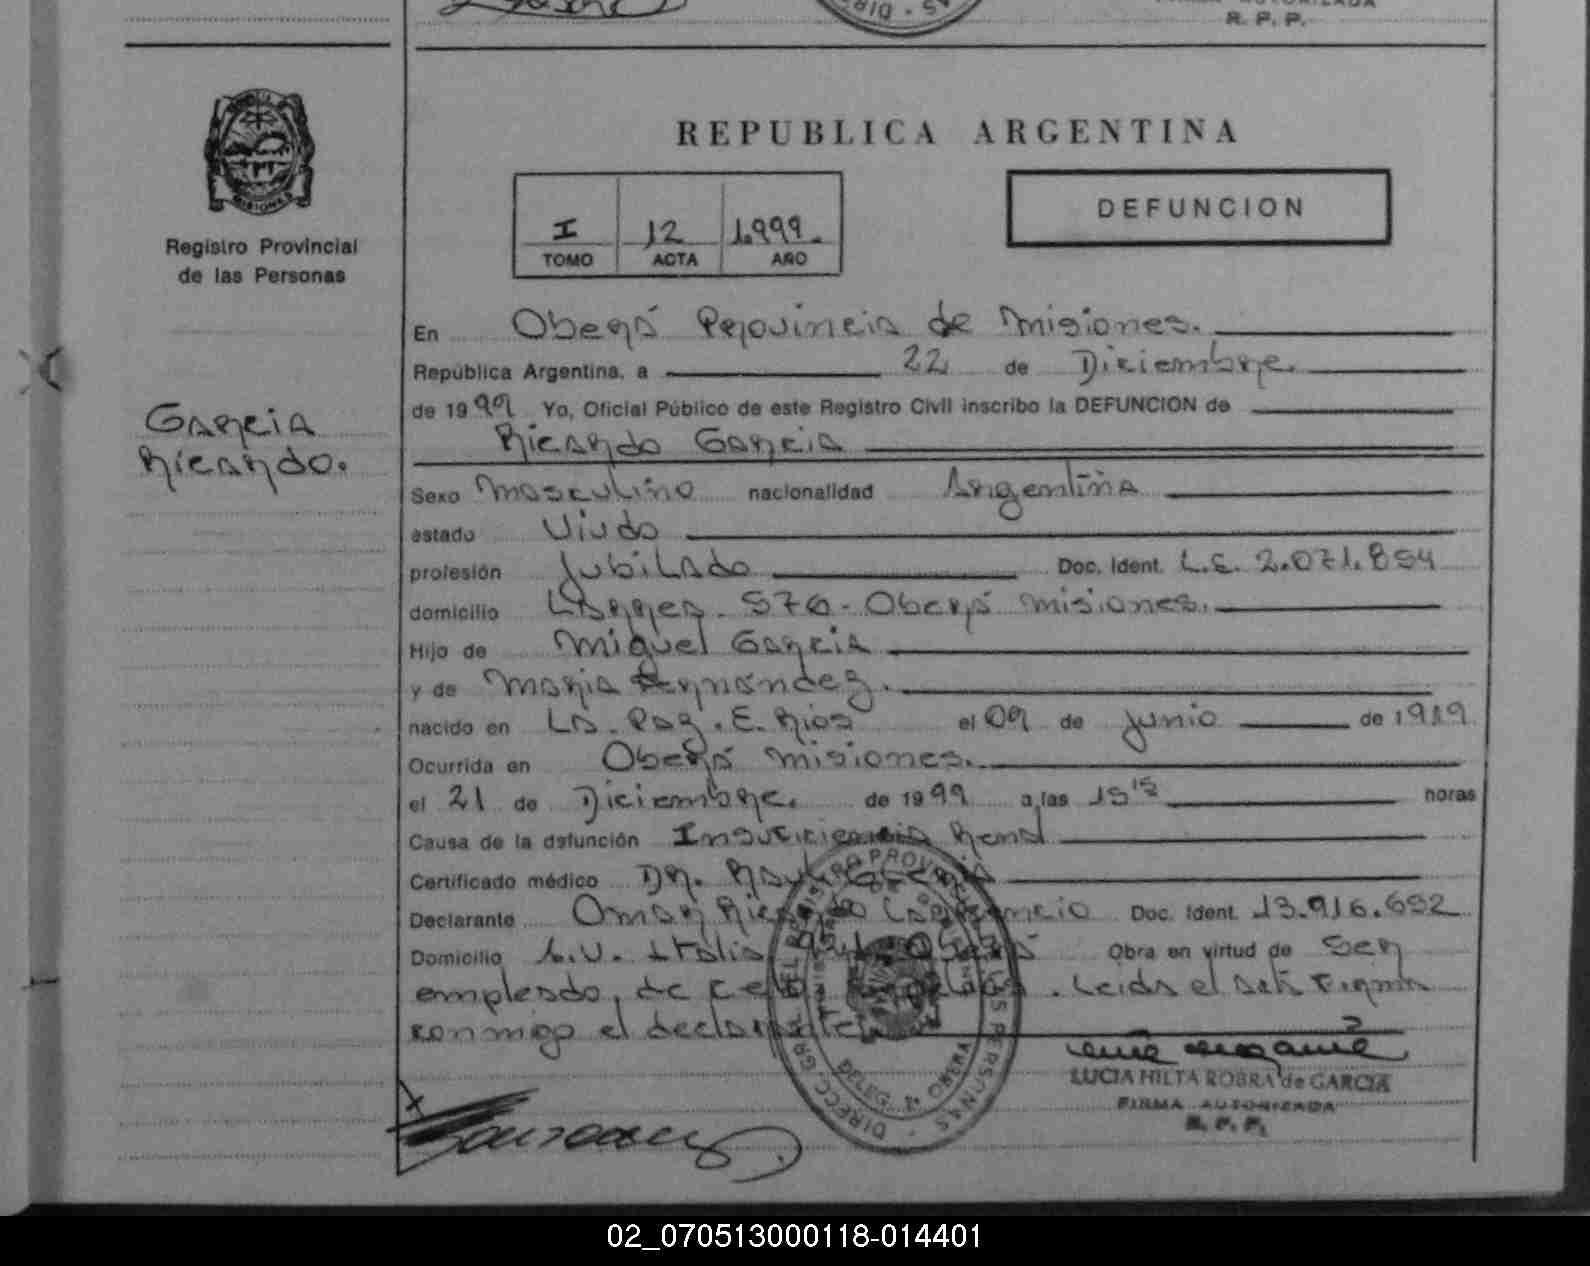 R. P. P.
REPUBLICA ARGENTINA
MISIONES
Registro Provincial
de las Personas
I 12 1.999.
TOMO ACTA AÑO
DEFUNCION
En Oberá Provincia de Misiones.
República Argentina, a 22 de Diciembre.
de 1999 Yo, Oficial Público de este Registro Civil inscribo la DEFUNCION de
Garcia
Ricardo.
Ricardo Garcia
Sexo masculino nacionalidad Argentina
estado Viudo
profesión Jubilado Doc. Ident. L.E. 2.071.854
domicilio Oberá misiones.
Hijo de Miguel Garcia
y de Maria Hernández.
nacido en La Paz. E. Rios el 09 de junio de 1919
Ocurrida en Oberá misiones.
el 21 de Diciembre. de 1999 a las 15 horas
Causa de la defunción Insuficiencia Renal
Certificado médico DR. Raul
Declarante Omar Ricardo Doc. Ident. 13.916.652
Domicilio A.V. Italia Oberá Obra en virtud de Ser
empleado, de . Leida el acta Firma
conmigo el declarante
LUCIA HILTA ROBRA de GARCIA
FIRMA AUTORIZADA
R. P. P.
02_070513000118-014401